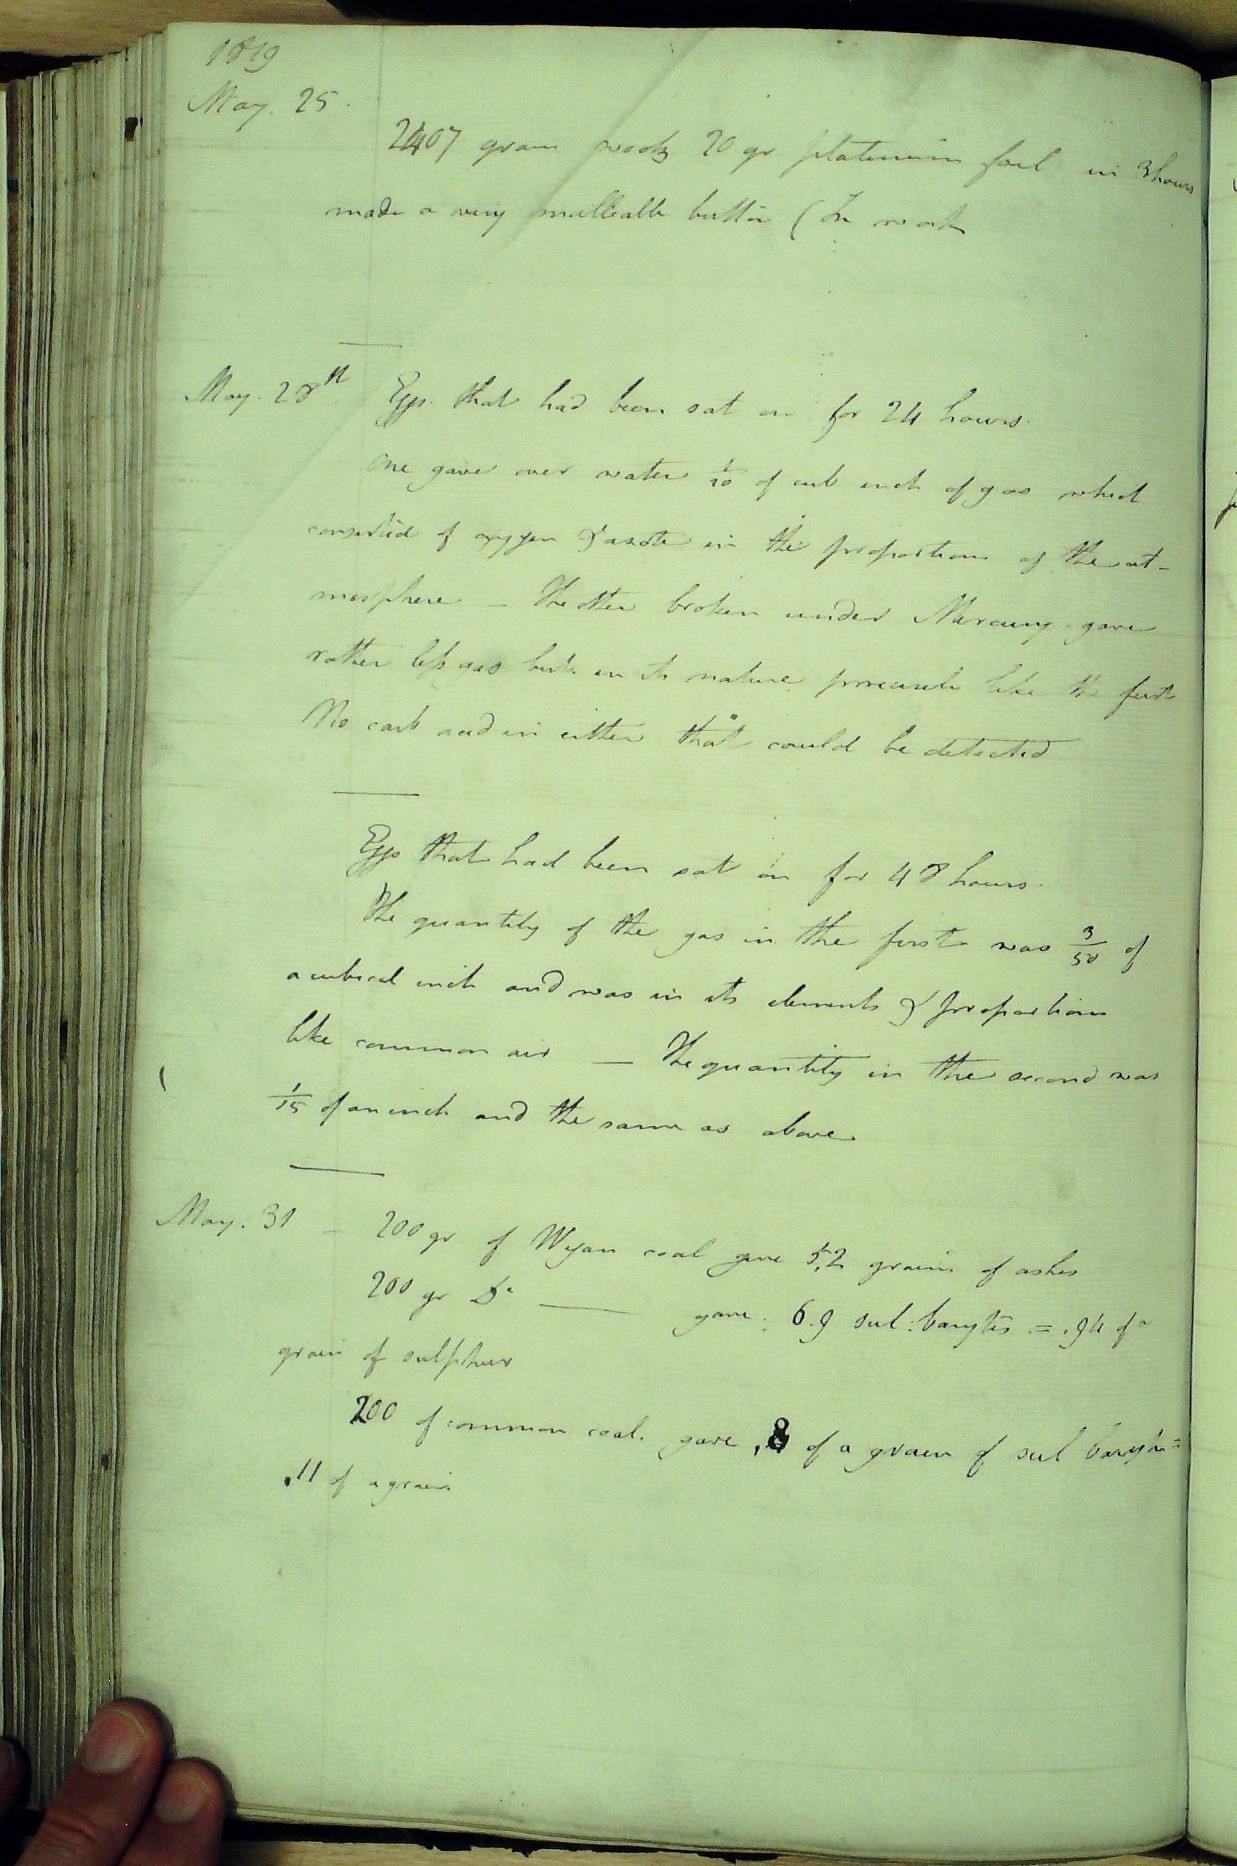 1819
May. 25.
2407 grain wootz 20 gr platinum foil in 3 hours
made a very malleable button (In
May. 28th Eggs that had been sat on for 24 hours.
One gave over water 1/10 of cub inch of gas which
consisted of oxygen & azote in the proportions of the at-
mosphere – The other broken under Mercury gave
rather less gas but in its nature precisely like the first
No carb acid in either that could be detected
Eggs that had been sat on for 48 hours.
The quantity of the gas in the first was 3/50 of
a cubical inch and was in its elements & proportions
like common air — The quantity in the second was
1/15 of an inch and the same as above.
May. 31 – 200 gr of Wigan coal gave 5.2 grains of ashes
200 gr Do —— gave. 6.9 sul: barytes = .94 of a
grain of sulphur
200 of common coal. gave .8 of a grain of sul barytes =
.11 of a grain